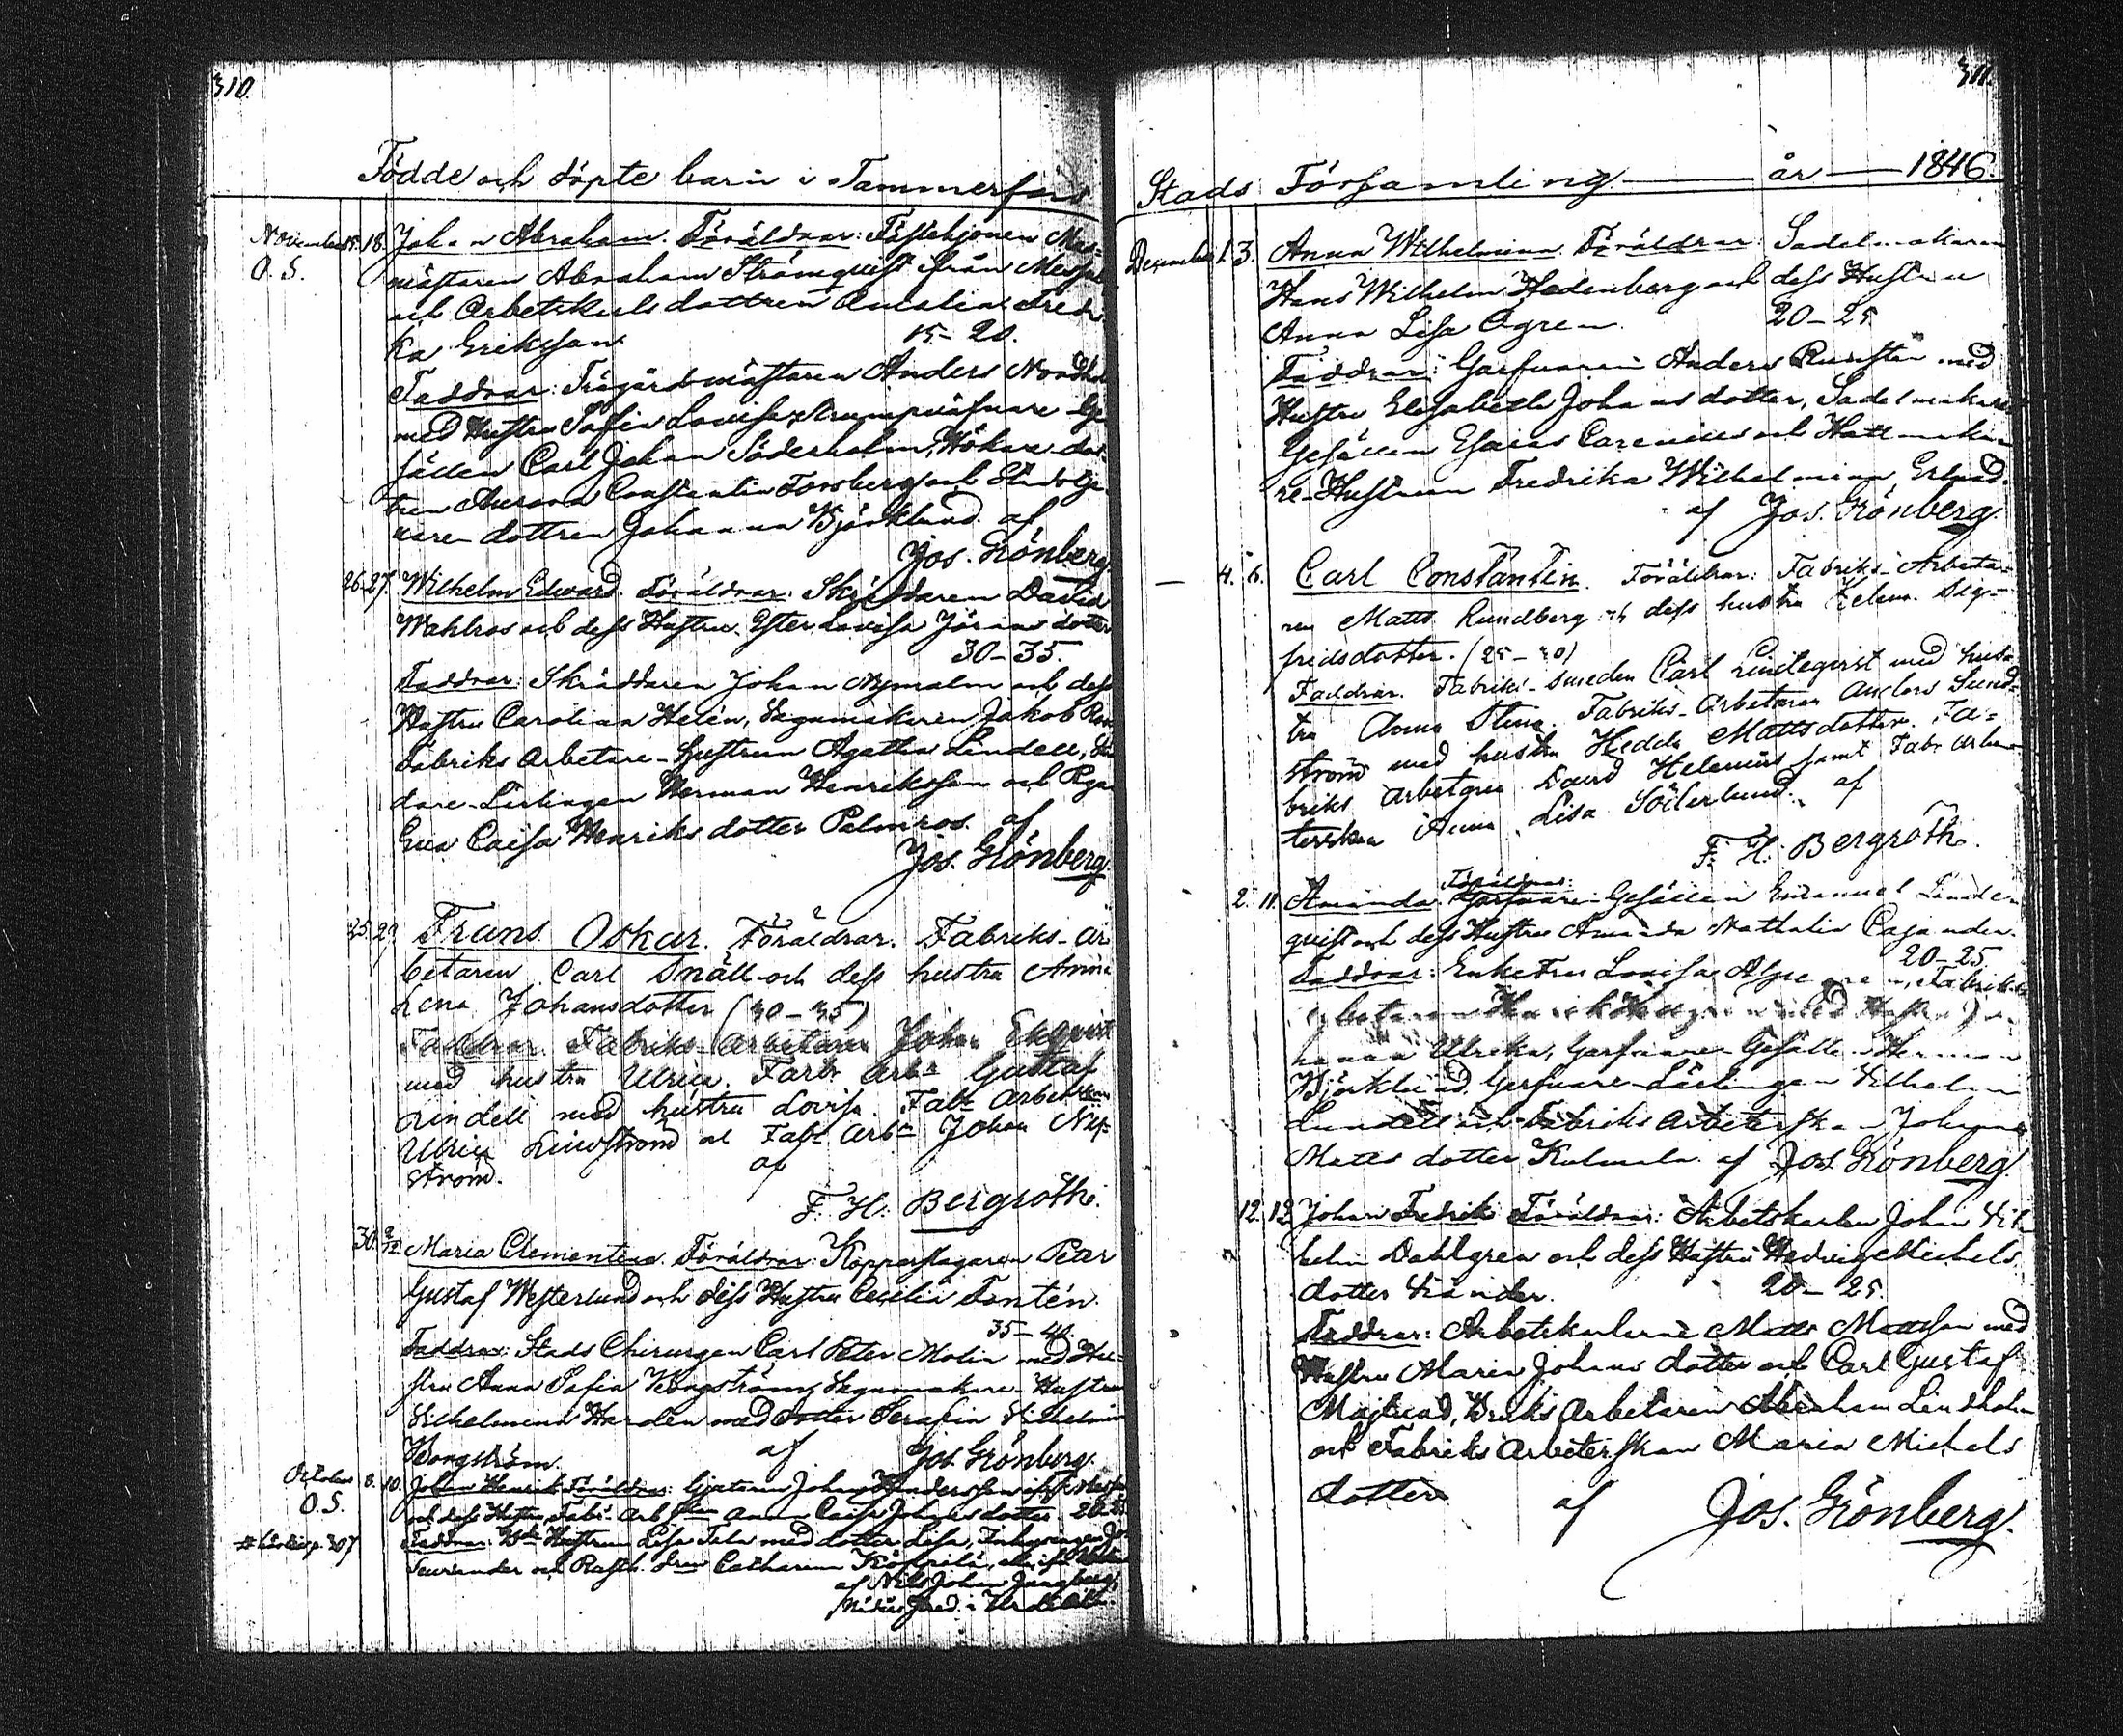 310.
Födde och döpte barn i Tammerfors
November 15. 18. Johan Abraham. Föräldrar: Fästehjonen Mur-
O. S. mästaren Abraham Strömquist ifrån
och Arbetskarls dottren Amalia Fredri-
ka Eriksson. 15–20.
Faddrar: Trägårdsmästaren Anders
med Hustru Sofia Lovisa, Strumpväfvare Ge-
sällen Carl Johan Söderholm, Hökare dot-
tren Aurora Constantia Forsberg och
nare dottren Johanna Björklund af
Jos. Grönberg.
26. 27. Wilhelm Edward. Föräldrar: Skräddaren David
Wahlros och dess Hustru Ester Lovisa Jörans dotter
30–35.
Faddrar: Skräddaren Johan Nymalm och dess
Hustru Carolina Helén, Vagnmakaren Jakob
Fabriks Arbetare-hustrun Agatha Lindell,
dare-Lärlingen Herman Henriksson och Piga
Eva Caisa Henriks dotter Palmros. af
Jos. Grönberg.
25. 27. Frans Oskar. Föräldrar. Fabriks-ar
betaren Carl Snäll och dess hustru Anna
Lena Johansdotter (30–35)
Faddrar. Fabriks-Arbetaren Johan Ekqvist
med hustru Ulrica. Fabr Arb:n Gustaf
Lindell med hustru Lovisa. Fab: Arbeterskan
Ulrica Lindström och Fabr Arb:n Johan Ny-
ström. af
F. H. Bergroth.
30. Maria Clementina. Föräldrar: Kopparslagaren Petter
Gustaf Westerlund och dess Hustru Cecilia Fontén.
35–40.
Faddrar: Stads Chirurgen Carl Peter Molin med Hu-
stru Anna Sofia Kongström, Vagnmakare-Hustrun
Vilhelmina Harden med dotter Serafia Vilhelmina
Kongström. af Jos. Grönberg.
October 8. 10. Johan Henrik. Föräldrar: Gjutaren Johan
O.S. och dess Hustru Anna Caisa Johans dotter
307 Faddrar: Hustrun Lisa med dotter Lisa,
och Catharina
af Nils Johan
311.
Stads Församling — år — 1846.
December 1. 3. Anna Wilhelmina. Föräldrar: Sadelmakaren
Hans Wilhelm Hedenberg och dess Hustru
Anna Lisa Ågren. 20–25
Faddrar: Garfvaren Anders Runsten med
Hustru Elisabeth Johans dotter, Sadelmakare
Gesällen Esaias Carenius och Hattmaka-
re-Hustrun Fredrika Wilhelmina
af Jos. Grönberg.
— 4. 6. Carl Constantin. Föräldrar: Fabriks-Arbeta-
ren Matts Rundberg och dess hustru Helena Sig-
fridsdotter. (25–30)
Faddrar. Fabriks-smeden Carl Lindeqvist med hus-
tru Anna Stina. Fabriks-Arbetaren Anders Sund-
ström med hustru Hedda Mattsdotter. Fa-
briks arbetaren David Helenius samt Fabr arbe-
terskan Anna Lisa Söderlund. af
F. H. Bergroth.
2. 11. Amanda. Föräldrar: Garfvare-Gesällen Emanuel Linde-
quist och dess Hustru Amanda Nathalia Cajander.
20–25.
Faddrar: Enkefru Lovisa Fabriks
Arbetaren med Hustru Jo-
hanna Ulrika, Garfvare-Gesällen Herman
Björklund, Garfvare-Lärlingen Vilhelm
Lundell och Fabriks Arbeterskan Johanna
Matts dotter Kulmala. af Jos. Grönberg.
12. 12. Johan Fredrik. Föräldrar: Arbetskarlen Johan Vil-
helm Dahlgren och dess Hustru Hedvig Michels
dotter 20–25.
Faddrar: Arbetskarlarne Matts Mattsson med
Hustru Maria Johans dotter och Carl Gustaf
Majlund, Bruks Arbetaren Abraham Lindholm
och Fabriks Arbeterskan Maria Michels
dotter af Jos. Grönberg.